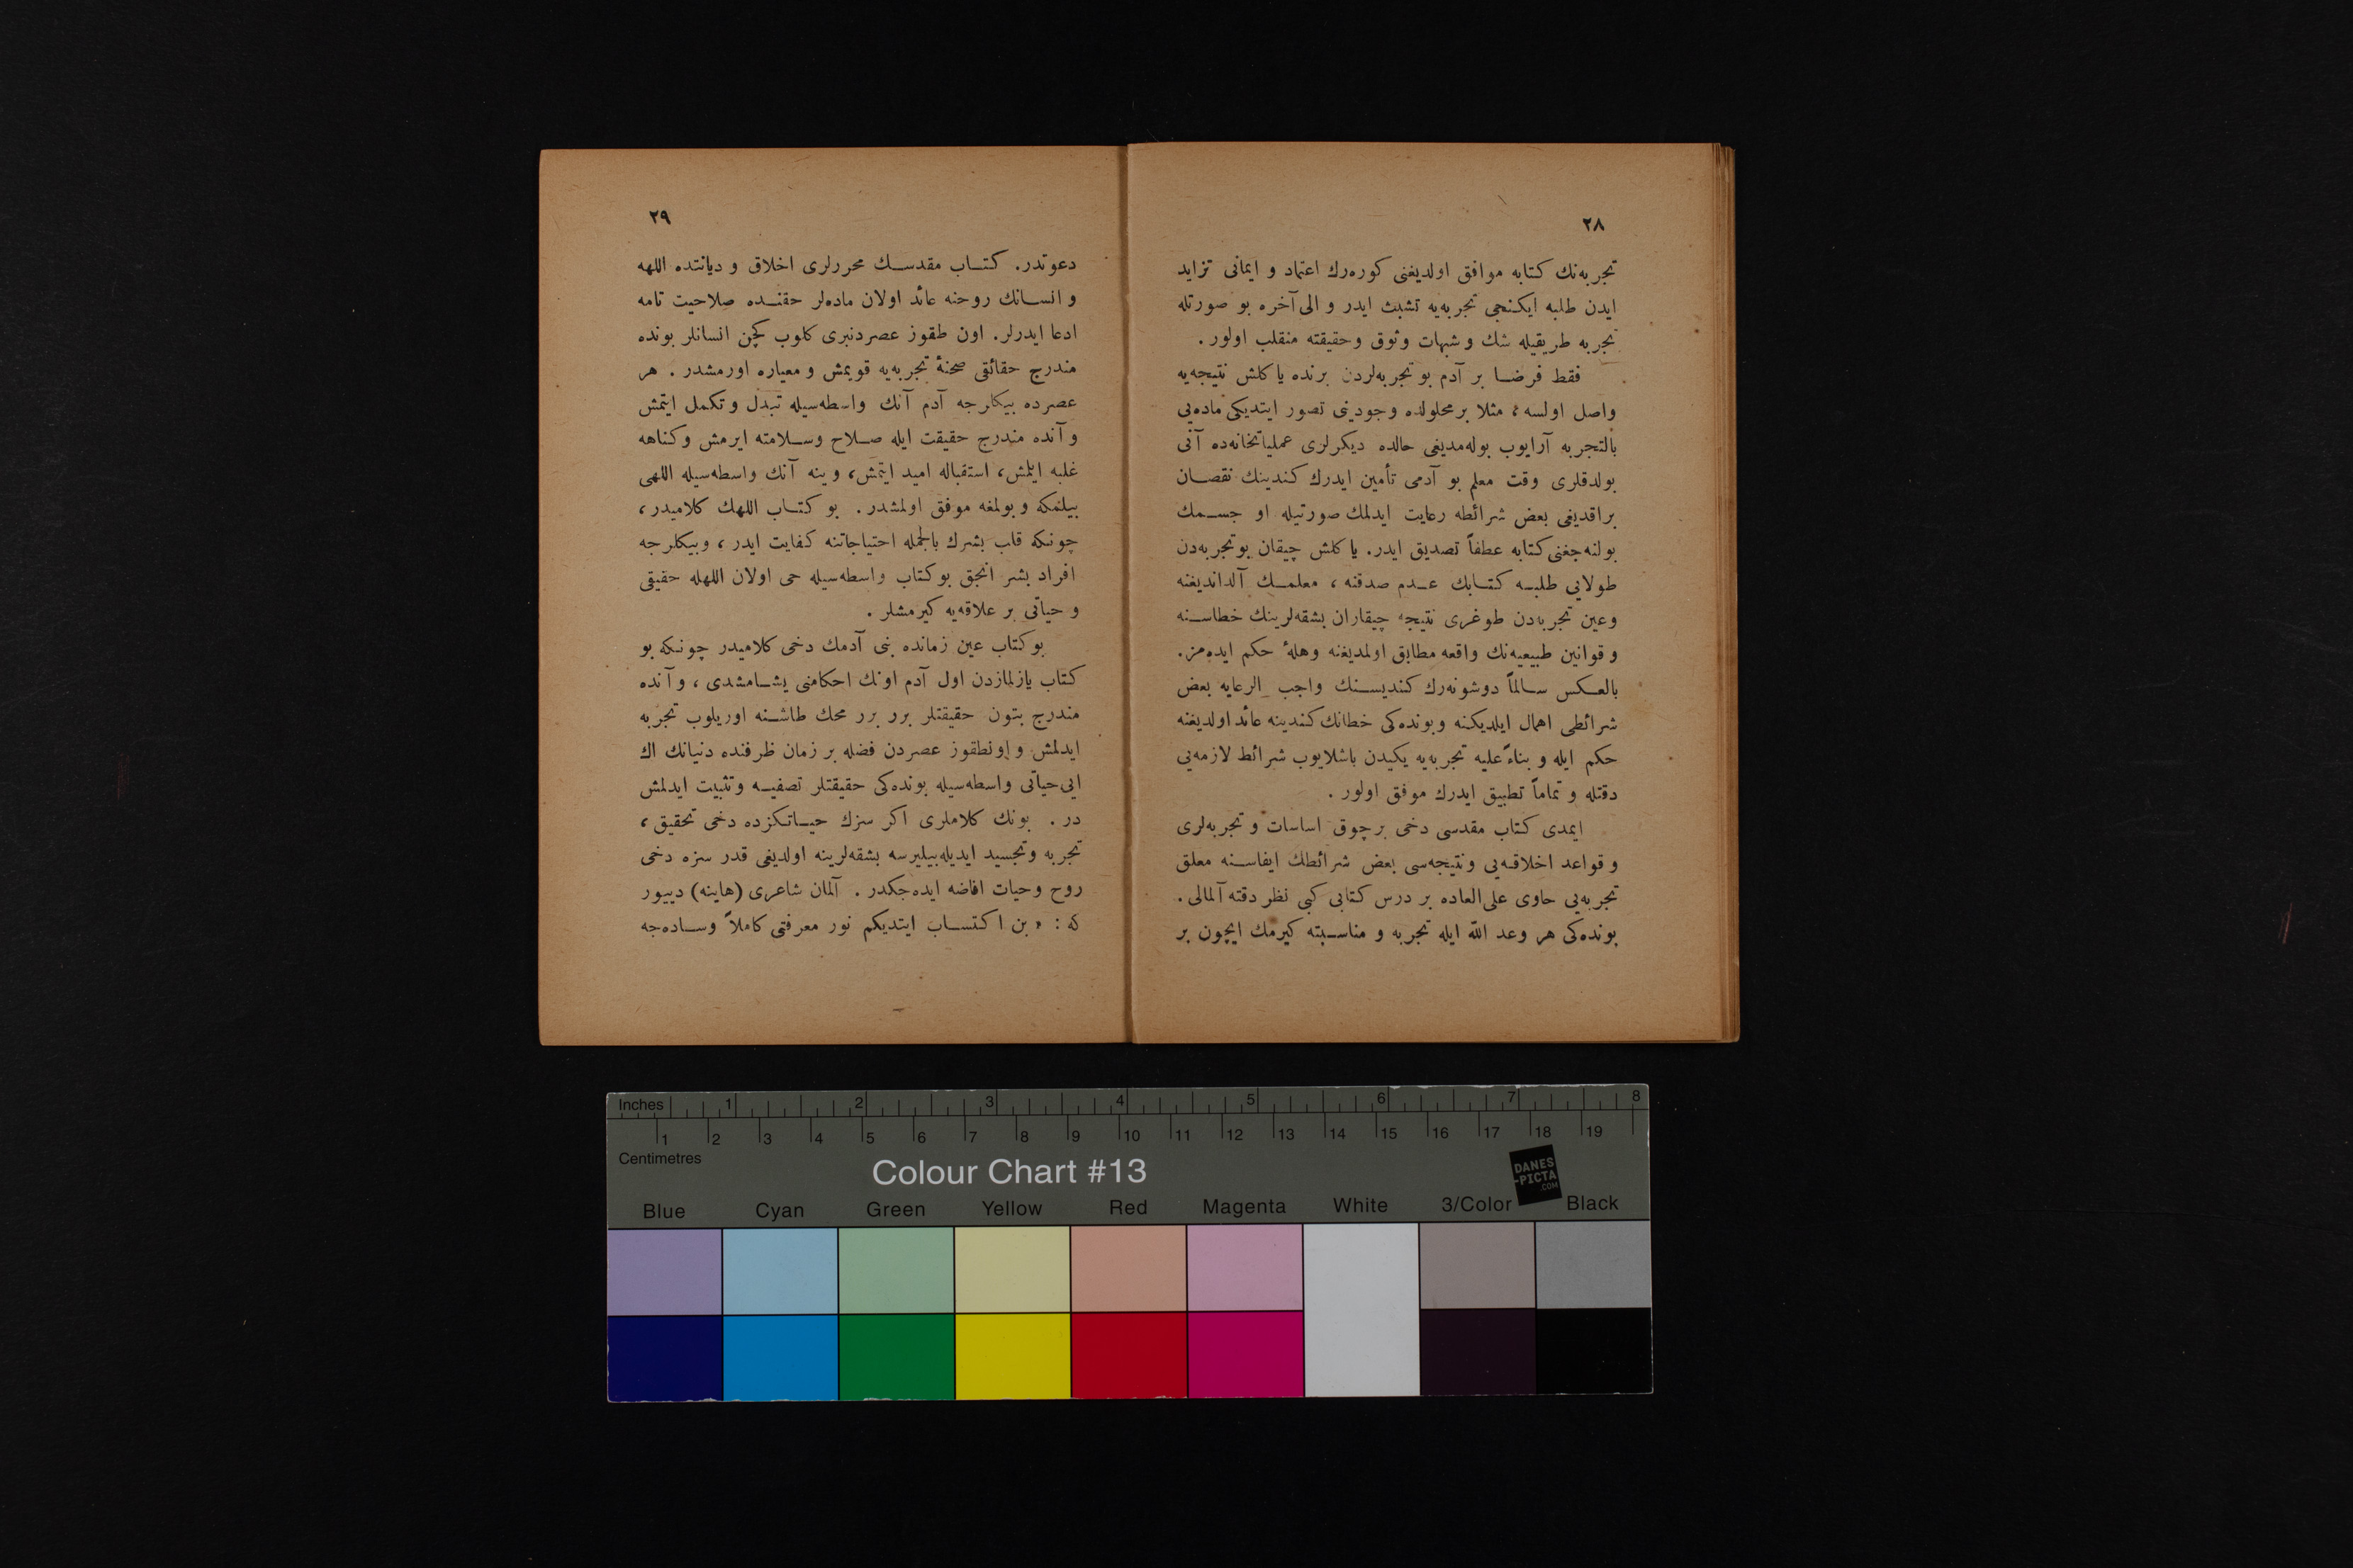 ٢٨
تجربه‌نك كتابه موافق اولديغنى كوره‌رك اعتماد و ايمانى تزايد
ايدن طلبه ايكنجى تجربه‌يه تشبث ايدر و الى آخره بو صورتله
تجربه طريقيله شك و شبهات وثوق وحقيقته منقلب اولور .
فقط فرضا بر آدم بو تجربه‌لردن برنده ياكلش نتيجه‌يه
واصل اولسه ؛ مثلا بر محلولده وجودينى تصور ايتديكى ماده‌يى
بالتجربه آرايوب بوله‌مديغى حالده ديكرلرى عملياتخانه‌ده آنى
بولدقلرى وقت معلم بو آدمى تأمين ايدرك كندينك نقصان
براقديغى بعض شرائطه رعايت ايدلمك صورتيله او جسمك
بولنه‌جغنى كتابه عطفاً تصديق ايدر. ياكلش چيقان بو تجربه‌دن
طولايى طلبه كتابك عدم صدقنه ، معلمك آلدانديغنه
وعين تجربه‌دن طوغرى نتيجه چيقاران بشقه‌لرينك خطاسنه
و قوانين طبيعيه‌نك واقعه مطابق اولمديغنه وهلةً حكم ايده‌مز.
بالعكس سالماً دوشونه‌رك كنديسنك واجب الرعايه بعض
شرائطى اهمال ايلديكنه وبونده‌كى خطانك كندينه عائد اولديغنه
حكم ايله و بناءً عليه تجربه‌يه يكيدن باشلايوب شرائط لازمه‌يى
دقتله و تماماً تطبيق ايدرك موفق اولور .
ايمدى كتاب مقدسى دخى بر چوق اساسات و تجربه‌لرى
و قواعد اخلاقيه‌يى ونتيجه‌سى بعض شرائطك ايفاسنه معلق
تجربه‌يى حاوى على العاده بر درس كتابى كبى نظر دقته آلمالى .
بونده‌كى هر وعد الله ايله تجربه و مناسبته كيرمك ايچون بر
٢٩
دعوتدر. كتاب مقدسك محررلرى اخلاق و ديانتده اللهه
و انسانك روحنه عائد اولان ماده‌لر حقنده صلاحيت تامه
ادعا ايدرلر. اون طقوز عصردنبرى كلوب كچن انسانلر بونده
مندرج حقائقى صحنهٔ تجربه‌يه قويمش و معياره اورمشدر . هر
عصرده بيكلرجه آدم آنك واسطه‌سيله تبدل و تكمل ايتمش
و آنده مندرج حقيقت ايله صلاح وسلامته ايرمش وكناهه
غلبه ايلمش، استقباله اميد ايتمش، وينه آنك واسطه‌سيله اللهى
بيلمكه و بولمغه موفق اولمشدر . بو كتاب اللهك كلاميدر ،
چونكه قلب بشرك بالجمله احتياجاتنه كفايت ايدر ، وبيكلرجه
افراد بشر انجق بو كتاب واسطه‌سيله حى اولان اللهله حقيقى
و حياتى بر علاقه‌يه كيرمشلر .
بو كتاب عين زمانده بنى آدمك دخى كلاميدر چونكه بو
كتاب يازلمازدن اول آدم اونك احكامنى يشامشدى ، و آنده
مندرج بتون حقيقتلر برر برر محك طاشنه اوريلوب تجربه
ايدلمش و اونطقوز عصردن فضله بر زمان ظرفنده دنيانك اك
ايى حياتى واسطه‌سيله بونده‌كى حقيقتلر تصفيه وتثبيت ايدلمش
در . بونك كلاملرى اكر سزك حياتكزده دخى تحقيق ،
تجربه وتجسيد ايديله‌بيليرسه بشقه‌لرينه اولديغى قدر سزه دخى
روح وحيات افاضه ايده‌جكدر . آلمان شاعرى (هاينه) دييور
كه : « بن اكتساب ايتديكم نور معرفتى كاملاً وساده‌جه
Inches 1 2 3 4 5 6 7 8
1 2 3 4 5 6 7 8 9 10 11 12 13 14 15 16 17 18 19
Centimetres
Colour Chart #13
DANES
-PICTA
.COM
Blue Cyan Green Yellow Red Magenta White 3/Color Black